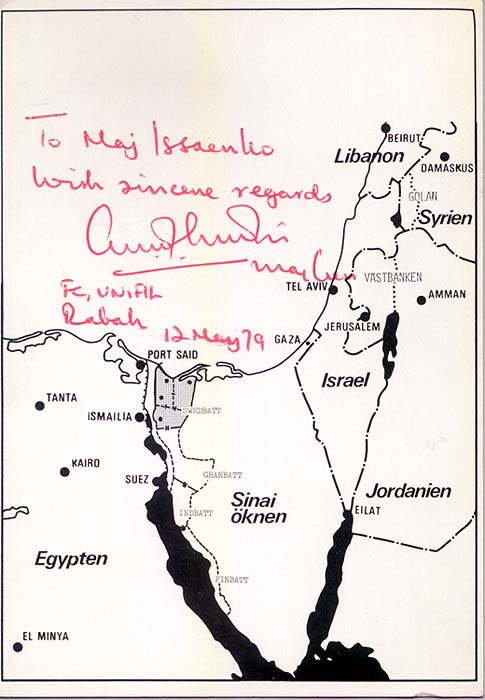 To Maj Issaenko
With sincere regards
Maj Gen
FC, UNIFIL
Rabah
12 May 79
BEIRUT
Libanon
DAMASKUS
GOLAN
Syrien
VÄSTBANKEN
TEL AVIV
AMMAN
JERUSALEM
GAZA
PORT SAID
Israel
TANTA
ISMAILIA
SWEDBATT
KAIRO
SUEZ
GHANBATT
Sinai
öknen
Jordanien
INDBATT
EILAT
Egypten
FINBATT
EL MINYA